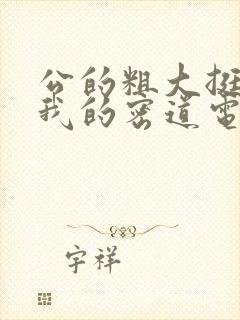 公的粗大挺
我的密道电
宇祥